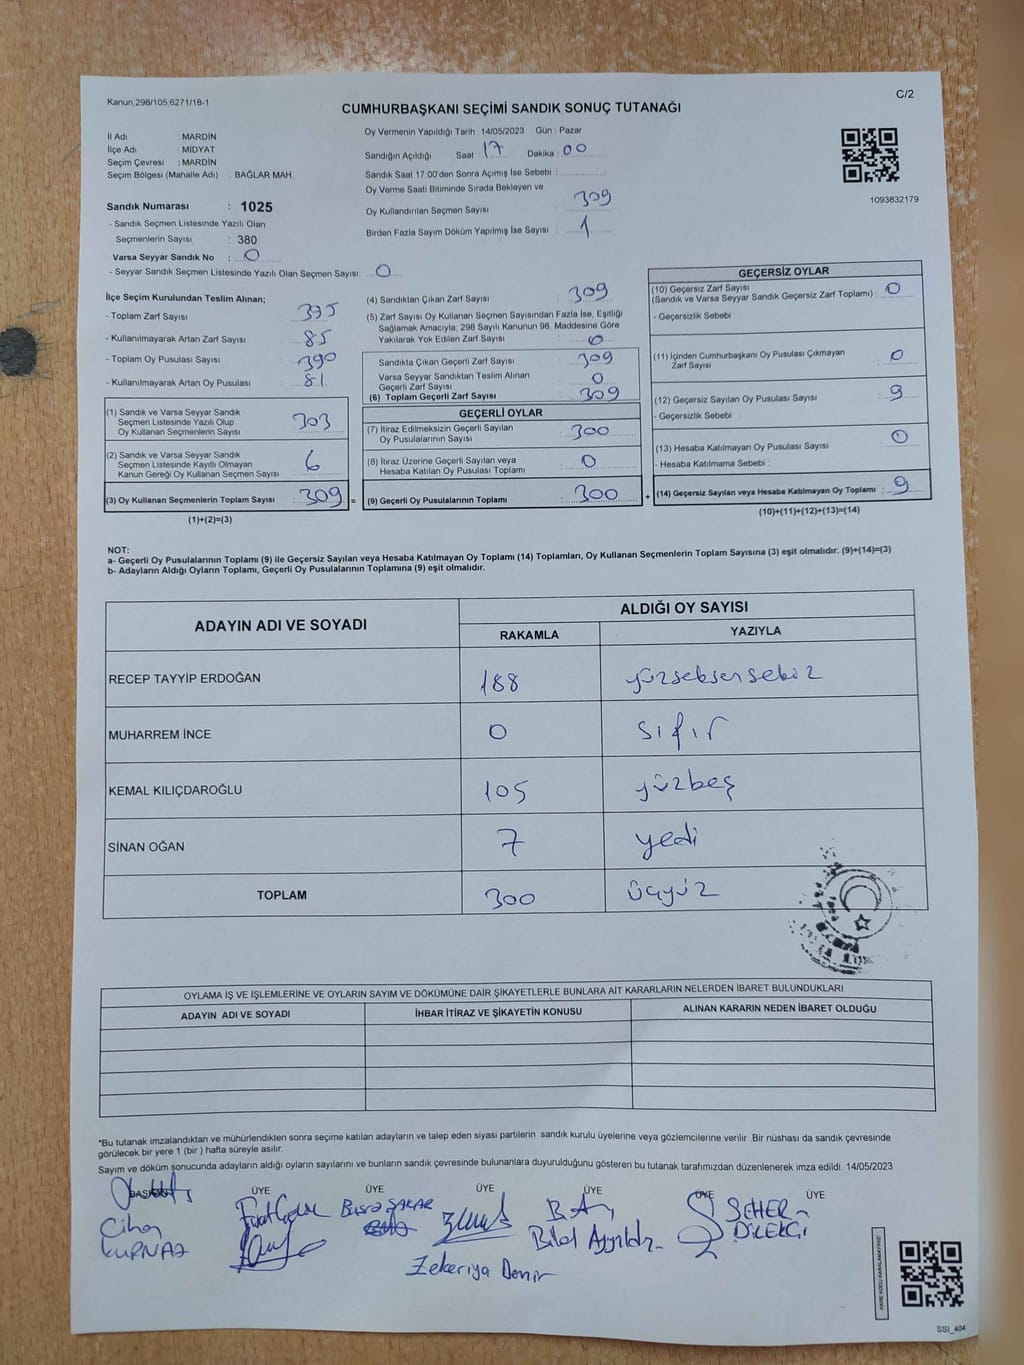 Kanun,298/105;6271/18-1
C/2
CUMHURBAŞKANI SEÇİMİ SANDIK SONUÇ TUTANAĞI
İl Adı : MARDİN
İlçe Adı : MİDYAT
Seçim Çevresi : MARDİN
Seçim Bölgesi (Mahalle Adı) : BAĞLAR MAH.
Sandık Numarası : 1025
- Sandık Seçmen Listesinde Yazılı Olan
Seçmenlerin Sayısı : 380
Varsa Seyyar Sandık No : 0
- Seyyar Sandık Seçmen Listesinde Yazılı Olan Seçmen Sayısı: 0
Oy Vermenin Yapıldığı Tarih : 14/05/2023 Gün : Pazar
Sandığın Açıldığı Saat : 17 Dakika : 00
Sandık Saat 17.00'den Sonra Açımış İse Sebebi :
Oy Verme Saati Bitiminde Sırada Bekleyen ve
Oy Kullandırılan Seçmen Sayısı : 309
Birden Fazla Sayım Döküm Yapılmış İse Sayısı : 1
1093832179
İlçe Seçim Kurulundan Teslim Alınan;
- Toplam Zarf Sayısı : 395
- Kullanılmayarak Artan Zarf Sayısı : 85
- Toplam Oy Pusulası Sayısı : 390
- Kullanılmayarak Artan Oy Pusulası : 81
(1) Sandık ve Varsa Seyyar Sandık
Seçmen Listesinde Yazılı Olup
Oy Kullanan Seçmenlerin Sayısı : 303
(2) Sandık ve Varsa Seyyar Sandık
Seçmen Listesinde Kayıtlı Olmayan
Kanun Gereği Oy Kullanan Seçmen Sayısı : 6
(3) Oy Kullanan Seçmenlerin Toplam Sayısı : 309 =
(1)+(2)=(3)
(4) Sandıktan Çıkan Zarf Sayısı : 309
(5) Zarf Sayısı Oy Kullanan Seçmen Sayısından Fazla İse, Eşitliği
Sağlamak Amacıyla; 298 Sayılı Kanunun 98. Maddesine Göre
Yakılarak Yok Edilen Zarf Sayısı : 0
Sandıkta Çıkan Geçerli Zarf Sayısı : 309
Varsa Seyyar Sandıktan Teslim Alınan
Geçerli Zarf Sayısı : 0
(6) Toplam Geçerli Zarf Sayısı : 309
GEÇERLİ OYLAR
(7) İtiraz Edilmeksizin Geçerli Sayılan
Oy Pusulalarının Sayısı : 300
(8) İtiraz Üzerine Geçerli Sayılan veya
Hesaba Katılan Oy Pusulası Toplamı : 0
(9) Geçerli Oy Pusulalarının Toplamı : 300 +
GEÇERSİZ OYLAR
(10) Geçersiz Zarf Sayısı
(Sandık ve Varsa Seyyar Sandık Geçersiz Zarf Toplamı) : 0
- Geçersizlik Sebebi :
(11) İçinden Cumhurbaşkanı Oy Pusulası Çıkmayan
Zarf Sayısı : 0
(12) Geçersiz Sayılan Oy Pusulası Sayısı : 9
- Geçersizlik Sebebi :
(13) Hesaba Katılmayan Oy Pusulası Sayısı : 0
- Hesaba Katılmama Sebebi :
(14) Geçersiz Sayılan veya Hesaba Katılmayan Oy Toplamı : 9
(10)+(11)+(12)+(13)=(14)
NOT:
a- Geçerli Oy Pusulalarının Toplamı (9) ile Geçersiz Sayılan veya Hesaba Katılmayan Oy Toplamı (14) Toplamları, Oy Kullanan Seçmenlerin Toplam Sayısına (3) eşit olmalıdır. (9)+(14)=(3)
b- Adayların Aldığı Oyların Toplamı, Geçerli Oy Pusulalarının Toplamına (9) eşit olmalıdır.
ADAYIN ADI VE SOYADI
ALDIĞI OY SAYISI
RAKAMLA YAZIYLA
RECEP TAYYİP ERDOĞAN 188 yüzseksensekiz
MUHARREM İNCE 0 sıfır
KEMAL KILIÇDAROĞLU 105 yüzbeş
SİNAN OĞAN 7 yedi
TOPLAM 300 üçyüz
OYLAMA İŞ VE İŞLEMLERİNE VE OYLARIN SAYIM VE DÖKÜMÜNE DAİR ŞİKAYETLERLE BUNLARA AİT KARARLARIN NELERDEN İBARET BULUNDUKLARI
ADAYIN ADI VE SOYADI İHBAR İTİRAZ VE ŞİKAYETİN KONUSU ALINAN KARARIN NEDEN İBARET OLDUĞU
*Bu tutanak imzalandıktan ve mühürlendikten sonra seçime katılan adayların ve talep eden siyasi partilerin sandık kurulu üyelerine veya gözlemcilerine verilir .Bir nüshası da sandık çevresinde
görülecek bir yere 1 (bir ) hafta süreyle asılır.
Sayım ve döküm sonucunda adayların aldığı oyların sayılarını ve bunların sandık çevresinde bulunanlara duyurulduğunu gösteren bu tutanak tarafımızdan düzenlenerek imza edildi. 14/05/2023
BAŞKAN ÜYE ÜYE ÜYE ÜYE ÜYE ÜYE
Cihan
KURNAZ
Büşra ŞAKAR
Zekeriya Demir
SEHER
DİLEKÇİ
KARE KODU KARALAMAYINIZ!
SSI_404